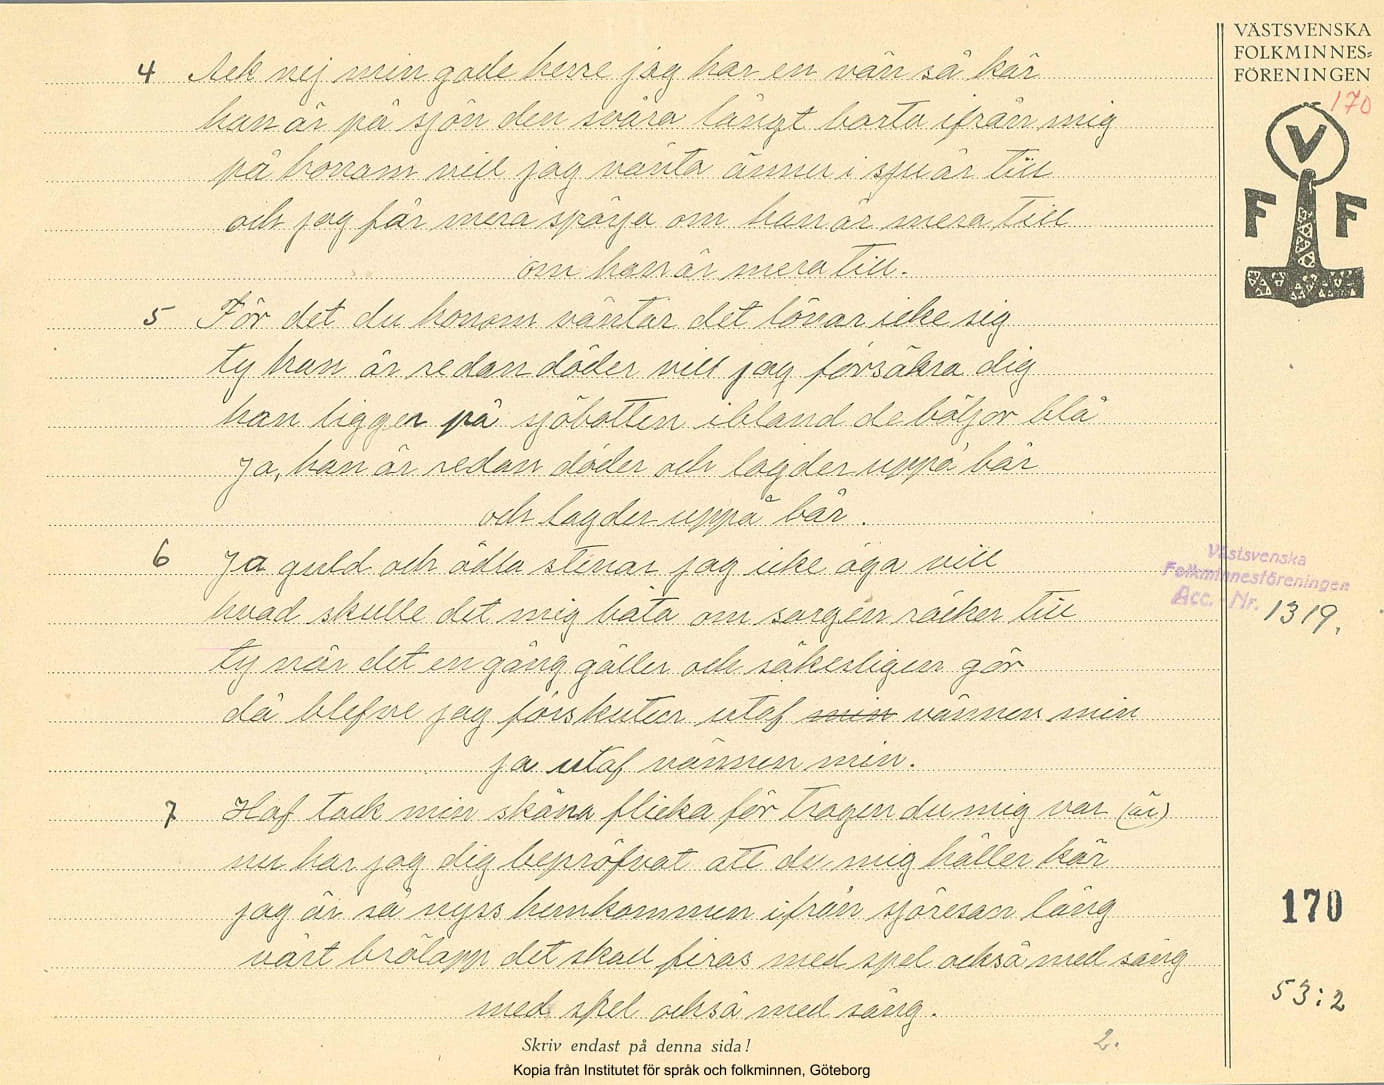 VÄSTSVENSKA
FOLKMINNES=
FÖRENINGEN
170
V
F F
4 Ack nej min gode herre jag har en vän så kär
han är på sjön den svåra långt borta ifrån mig
på honom vill jag vänta ännu i sju år till
och jag får mera spörja om han är mera till
om han är mera till.
5 För det du honom väntar det lönar icke sig
ty han är redan döder vill jag försäkra dig
han ligger på sjöbotten ibland de böljor blå
Ja, han är redan döder och lagder uppå bår
och lagder uppå bår.
6 Ja guld och ädla stenar jag icke äga vill
hvad skulle det mig båta om sorgen räcker till
ty när det en gång gäller och säkerligen gör
då blefve jag förskuten utaf min vännen min
ja utaf vännen min.
7 Haf tack min sköna flicka för trogen du mig var (är)
nu har jag dig bepröfvat att du mig håller kär
jag är så nyss hemkommen ifrån sjöresan lång
vårt brölopp det skall firas med spel också med sång
med spel också med sång.
Västsvenska
Folkminnesföreningen
Acc. - Nr. 1319.
170
53:2
Skriv endast på denna sida!
2.
Kopia från Institutet för språk och folkminnen, Göteborg